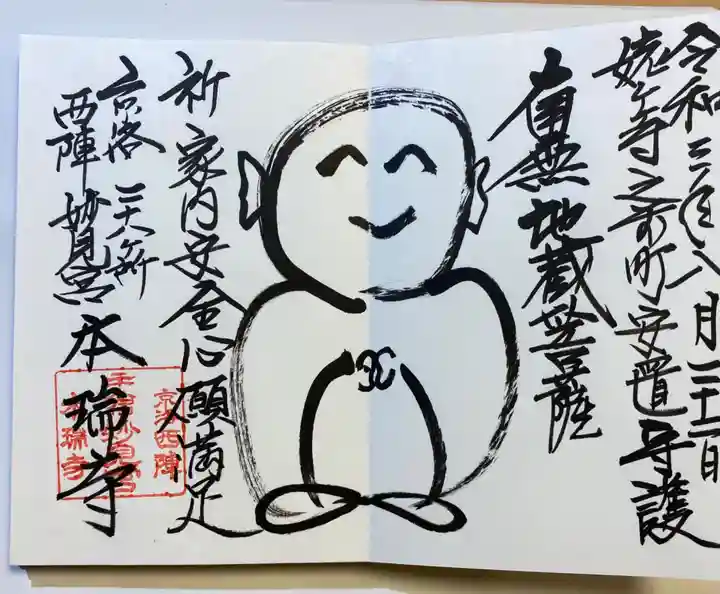 令和三年八月二十二日
姥ヶ寺之前町安置守護
有無地蔵菩薩
祈 家内安全心願満足
京洛 ヶ所
西陣 妙見宮 本瑞寺
京洛西陣
妙見宮
本瑞寺